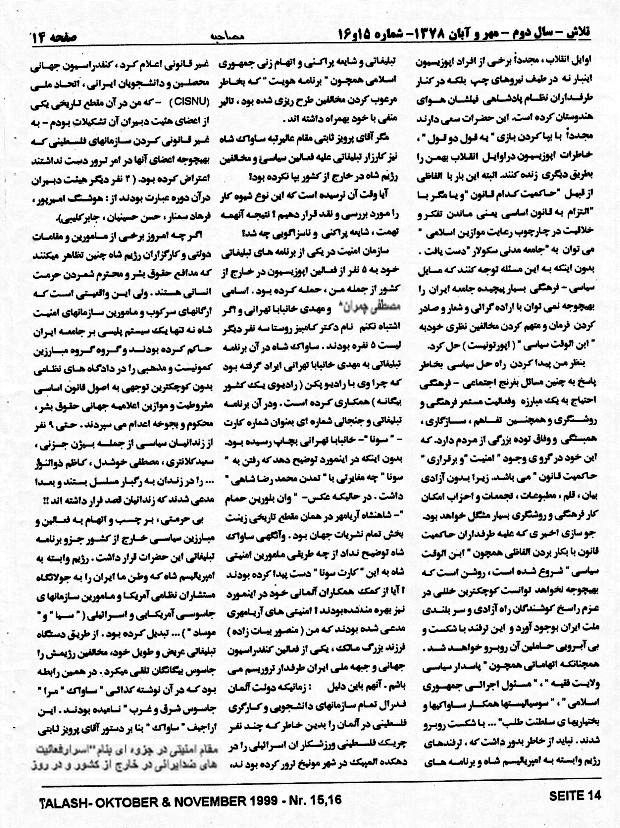 تلاش - سال دوم - مهر و آبان ۱۳۷۸- شماره ۱۵و۱۶
مصاحبه
صفحه ۱۴
اوایل انقلاب، مجدداً برخی از افراد اپوزیسیون
اینبار نه در طیف نیروهای چپ بلکه در کنار
طرفداران نظام پادشاهی فیلشان هوای
هندوستان کرده است. این حضرات سعی دارند
مجدداً با بپا کردن بازی " یه قول دو قول " ،
خاطرات اپوزیسیون در اوایل انقلاب بهمن را
بطریق دیگری زنده کنند. البته این بار با الفاظی
از قبیل "حاکمیت کدام قانون "و یا مگر با
"التزام به قانون اساسی یعنی ماندن تفکر و
خلاقیت در چارچوب رعایت موازین اسلامی "
می توان به "جامعه مدنی سکولار "دست یافت .
بدون اینکه به این مسئله توجه کنند که مسایل
سیاسی - فرهنگی بسیار پیچیده جامعه ایران را
بهیچوجه نمی توان با اراده گرائی و شعار و صادر
کردن فرمان و متهم کردن مخالفین نظری خود به
" ابن الوقت سیاسی " ( اپورتونیست ) حل کرد.
بنظر من پیدا کردن راه حل سیاسی بخاطر
پاسخ به چنین مسائل بغرنج اجتماعی - فرهنگی
احتیاج به یک مبارزه وفعالیت مستمر فرهنگی و
روشنگری و همچنین تفاهم ، سازگاری ،
همبستگی و وفاق توده بزرگی از مردم دارد، که
این خود در گروی وجود " امنیت "و برقراری "
حاکمیت قانون " می باشد. زیرا بدون آزادی
بیان ، قلم ، مطبوعات ، تجمعات و احزاب امکان
کار فرهنگی و روشنگری بسیار مشگل خواهد بود.
جو سازی اخیری که علیه طرفداران حاکمیت
قانون با بکار بردن الفاظی همچون " ابن الوقت
سیاسی " شروع شده است ، روشن است که
بهیچوجه نخواهد توانست کوچکترین خللی در
عزم راسخ کوشندگان راه آزادی و سر بلندی
ملت ایران بوجود آورد و این ترفند با شکست و
بی آبرویی حاملین آن روبرو خواهد شد .
همچنانکه اتهاماتی همچون " پاسدار سیاسی
ولایت فقیه " ، " مسئول اجرائی جمهوری
اسلامی " ، " سوسیالیستها همکار ساواکیها و
بختیاریهای سلطنت طلب" ... با شکست روبرو
شدند . نباید از خاطر بدور داشت که ، ترفندهای
رژیم وابسته به امپریالیسم شاه و برنامه های
تبلیغاتی و شایعه پراکنی و اتهام زنی جمهوری
اسلامی همچون " برنامه هویت " که بخاطر
مرعوب کردن مخالفین طرح ریزی شده بود ، تاثیر
منفی با خود بهمراه داشته اند .
مگر آقای پرویز ثابتی مقام عالیرتبه ساواک شاه
نیز کارزار تبلیغاتی علیه فعالین سیاسی و مخالفین
رژیم شاه در خارج از کشور بپا نکرده بود؟
آیا وقت آن نرسیده است که این نوع شیوه کار
را مورد بررسی و نقد قرار دهیم ؟ نتیجه آنهمه
تهمت ، شایعه پراکنی و ناسزاگویی چه شد؟
سازمان امنیت در یکی از برنامه های تبلیغاتی
خود به ۵ نفر از فعالین اپوزیسیون در خارج از
کشور از جمله من ، حمله کرده بود. اسامی
مصطفی چمران* و مهدی خانبابا تهرانی و اگر
اشتباه نکنم نام دکتر کامبیز روستا سه نفر دیگر
لیست ۵ نفره بودند . ساواک شاه در آن برنامه
تبلیغاتی به مهدی خانبابا تهرانی ایراد گرفته بود
که چرا وی با رادیو پکن ( رادیوی یک کشور
بیگانه ) همکاری کرده است . ودر آن برنامه
تبلیغاتی و جنجالی شماره ای بعنوان شماره کارت
- " سونا " - خانبابا تهرانی بچاپ رسیده بود.
بدون اینکه در اینمورد توضیح دهد که رفتن به "
سونا " چه مغایرتی با " تمدن محمد رضا شاهی "
داشت . در حالیکه عکس- " وان بلورین حمام
"- شاهنشاه آریامهر در همان مقطع تاریخی زینت
بخش تمام نشریات جهان بود . وآنگهی ساواک
شاه توضیح نداد از چه طریقی مامورین امنیتی
شاه به این "کارت سونا " دست پیدا کرده بودند
! آیا از کمک همکاران آلمانی خود در اینمورد
نیز بهره مند شده بودند ؟ امنیتی های آریامهری
مدعی شده بودند که من ( منصور بیات زاده )
فرزند بزرگ مالک ، یکی از فعالین کنفدراسیون
جهانی و جبهه ملی ایران طرفدار تروریسم می
باشم . آنهم باین دلیل : زمانیکه دولت آلمان
فدرال تمام سازمانهای دانشجویی و کارگری
فلسطینی در آلمان را بدین خاطر که چند نفر
چریک فلسطینی ورزشکاران اسرائیلی را در
دهکده المپیک در شهر مونیخ ترور کرده بودند،
غیر قانونی اعلام کرد ، کنفدراسیون جهانی
محصلین و دانشجویان ایرانی ، اتحاد ملی
(CISNU) - که من در آن مقطع تاریخی یکی
از اعضای هئیت دبیران آن تشکیلات بودم - به
غیر قانونی کردن سازمانهای فلسطینی که
بهیچوجه اعضای آنها در امر ترور دست نداشتند
اعتراض کرده بود. ( ۴ نفر دیگر هیئت دبیران
در آن دوره عبارت بودند از : هوشنگ امیرپور ،
فرهاد سمنار ، حسن حسینیان ، جابر کلیبی ).
اگر چه امروز برخی از مامورین و مقامات
دولتی و کارگزاران رژیم شاه چنین تظاهر میکنند
که مدافع حقوق بشر و محترم شمردن حرمت
انسانی هستند . ولی این واقعیتی است که
ارگانهای سرکوب و مامورین سازمانهای امنیت
شاه نه تنها یک سیستم پلیسی بر جامعه ایران
حاکم کرده بودند و گروه گروه مبارزین
کمونیست و مذهبی را در دادگاه های نظامی
بدون کوچکترین توجهی به اصول قانون اساسی
مشروطیت و موازین اعلامیه جهانی حقوق بشر ،
محکوم و بجوخه اعدام می سپردند . حتی ۹ نفر
از زندانیان سیاسی از جمله بیژن جزنی ،
سعید کلانتری ، مصطفی خوشدل ، کاظم ذوالنوار
... را در زندان به رگبار مسلسل بستند و بعدا
مدعی شدند که زندانیان قصد فرار داشته اند !!
بی حرمتی ، بر چسب و اتهام به فعالین و
مبارزین سیاسی خارج از کشور جزو برنامه
تبلیغاتی این حضرات قرار داشت . رژیم وابسته به
امپریالیسم شاه که وطن ما ایران را به جولانگاه
مستشاران نظامی آمریکا و مامورین سازمانهای
جاسوسی آمریکایی و اسرائیلی ( " سیا " و "
موساد " )... تبدیل کرده بود . از طریق دستگاه
تبلیغاتی عریض و طویل خود، مخالفین رژیمش را
جاسوس بیگانگان تلقی میکرد . در همین رابطه
بود که در آن نوشته کذائی " ساواک " مرا "
جاسوس شرق و غرب " نامیده بودند . این
اراجیف " ساواک " بنا بر دستور آقای پرویز ثابتی
مقام امنیتی در جزوه ای بنام "اسرار فعالیت
های ضدایرانی در خارج از کشور و در روز
TALASH- OKTOBER & NOVEMBER 1999 - Nr. 15,16
SEITE 14